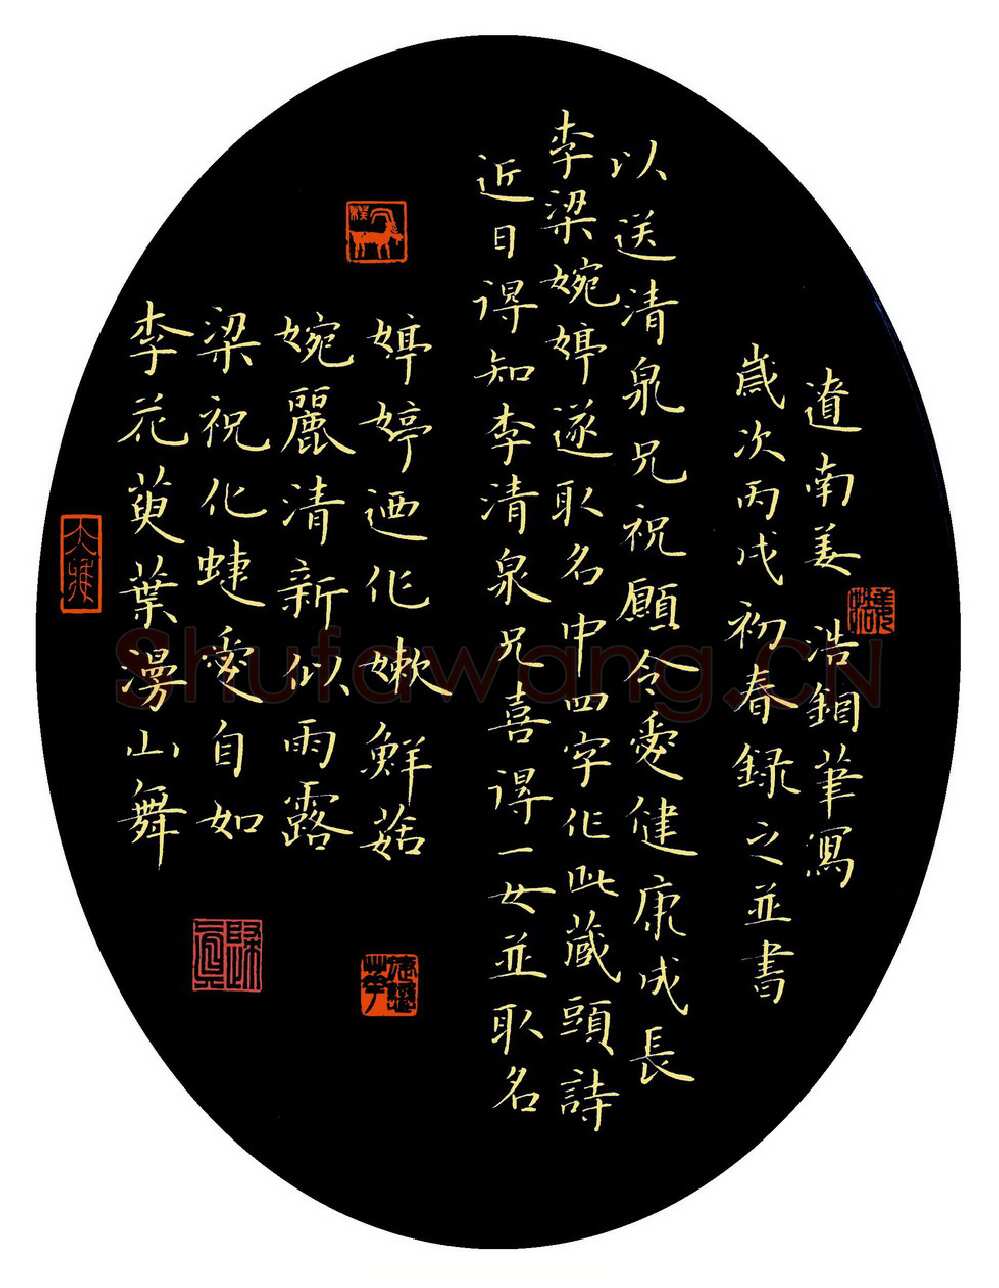 李花萸葉漫山舞
梁祝化蜨愛自如
婉麗清新似雨露
婷婷迺作嫩鮮菇
近日得知李清泉兄喜得一女並取名
李梁婉婷遂取名中四字作此藏頭詩
以送清泉兄祝願令愛健康成長
歲次丙戌初春録之並書
遼南姜浩筆寫
大雅
Shufawang.CN